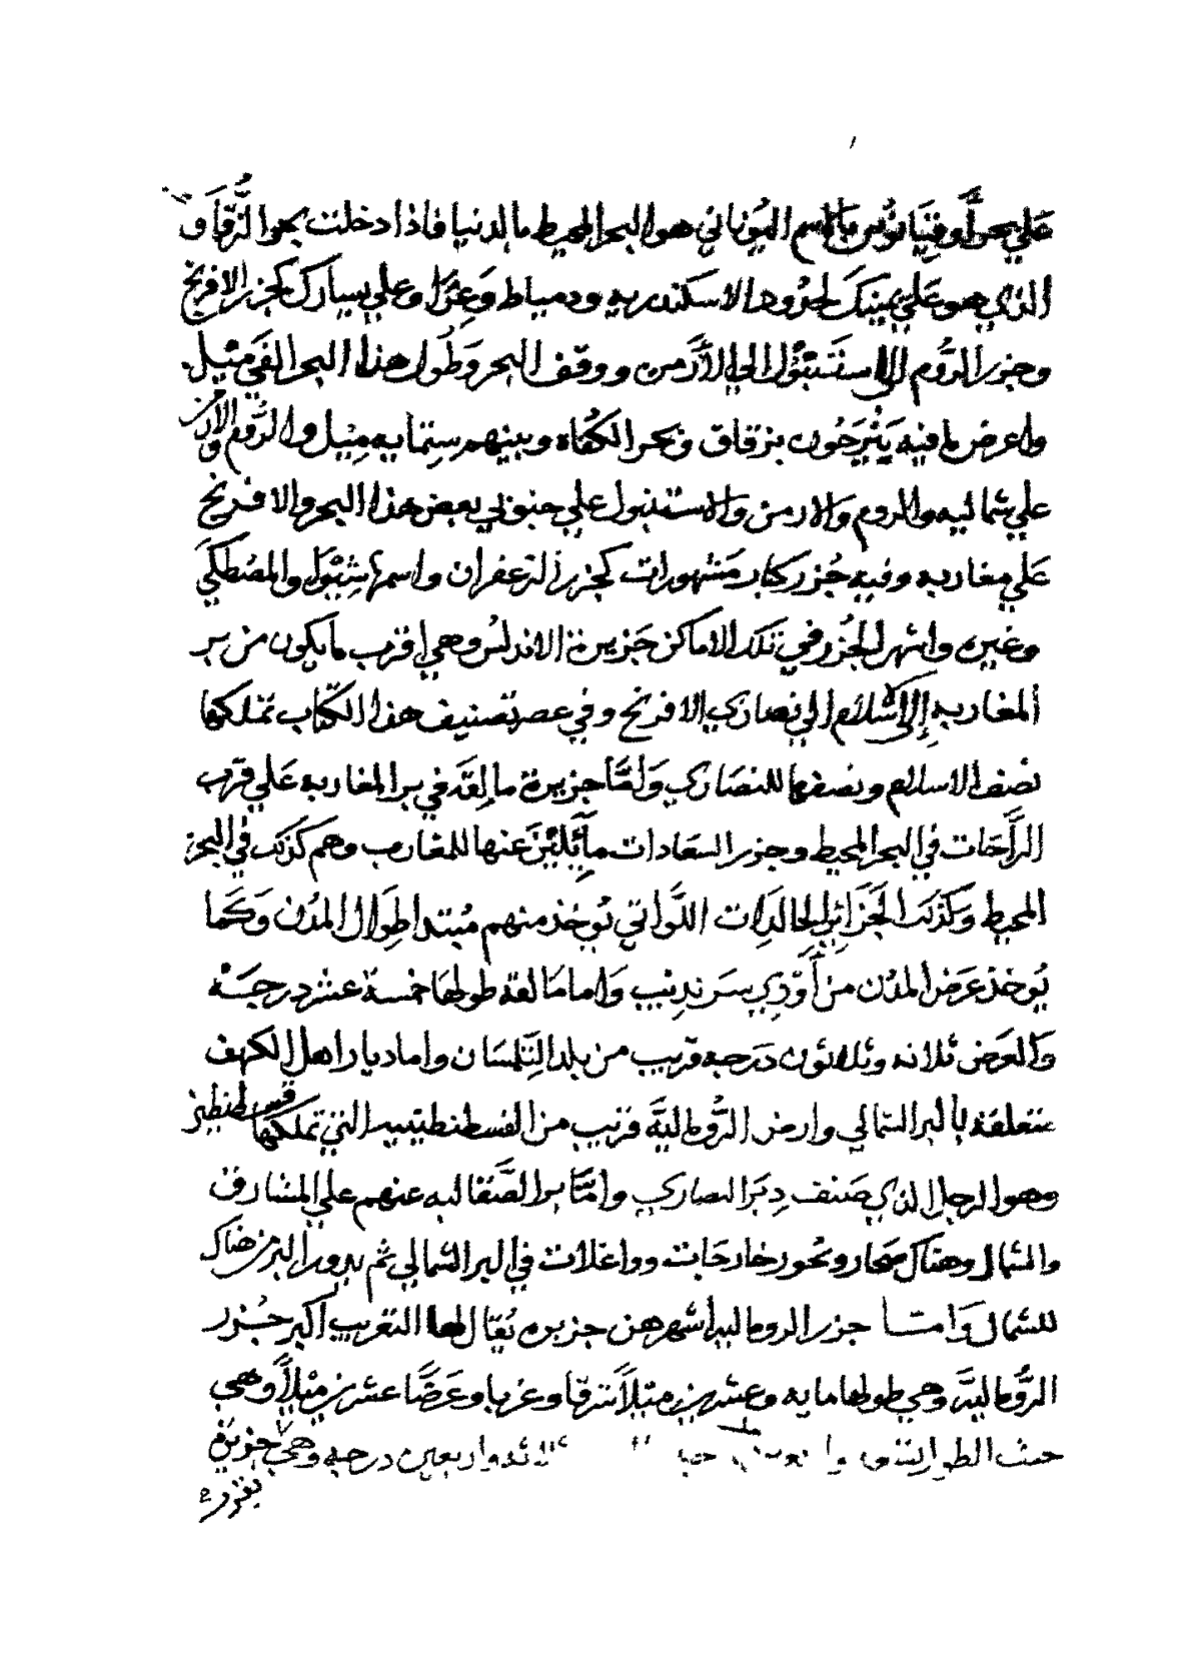 عَلي بحر أُوقِيَانوُس بالاسم اليُوناني هو البحر المحيط بالدنيا فاذا دخلت بحر الزُّقاق
الذي هو عَلي يمينكَ لجزُورها الاسكندريه ودمياط وَعِزّا وعلي يسارك لجزر الافرنج
وجزر الرُّوم الى استَنْبُول الي الأَرمن ووقف البحر وَطُول هذا البحر الفَي مِيْل
واعرض ما فيه يَتْبَرَجُون بزقاق وبحر الكمُاه وبينهم ستمايه مِيْل والرُّوم والارمن
علي شماليه والروم والارمن والاستنبول علي جنوبي بعض هذا البحر والافرنج
عَلي مغاربه وفيه جُزر كبار مَشهورات كجزر الزعفران واسمها شِبُوَل والمصُطكَي
وغيره واشهر الجُزر في تلك الاماكن جَزيرة الاندلسُ وهي اقرب ما يكون من بر
المغاربه إِلى الاسلام الي نصاري الافرنج وفي عصر تصنيف هذا الكتاب تملكها
نصْف الاسلام ونصفها للنصَاري وَامَّا جزيرة مالِقَه في بر المغاربه عَلي قرَب
الرَّاحَات في البحر المحيط وجزر السعَادات مايَليْن عنها للمغارب وهم كذلك في البحر
المحيط وَكذلكَ الجَزَائر الخالدَات اللَّواتي يُوخذ منهم مُبتدا طِوَال المدُن وَكما
يُوخذ عَرض المدُن من أَوّدِي سَرنديْب وَاما مَالقه طولهَا خمسة عشر درجَة
وَالعَرض ثلاثه وثلاثون دَرجه قريب من بلد التِلِمسَان واما ديار اهل الكهف
متعلقة بالبر الشمالي وارض الرُّوماليَّه قريب من القسطنطينيه التي تملكها قسطنطين
وهو الرجل الذي صَنف دِيَر النصاري وامَّا بر الصَّقالبه عنهم علي المشارق
والشمال وهناك بحار ونحُور خارجَات وواغلات في البر الشمالي ثم يدور البر من هناك
للشمال وَامَّا جزر الروماليه أشهرهن جزيره يُقال لها التغريب أكبر جُزر
الرُّوماليَّه وهي طولها مايه وعشرين ميْلاً شرقا وغربا وعَرضًا عشرين ميْلاً وهي
حيث الطول اثنين درجه وهي جزيرة
بقزر